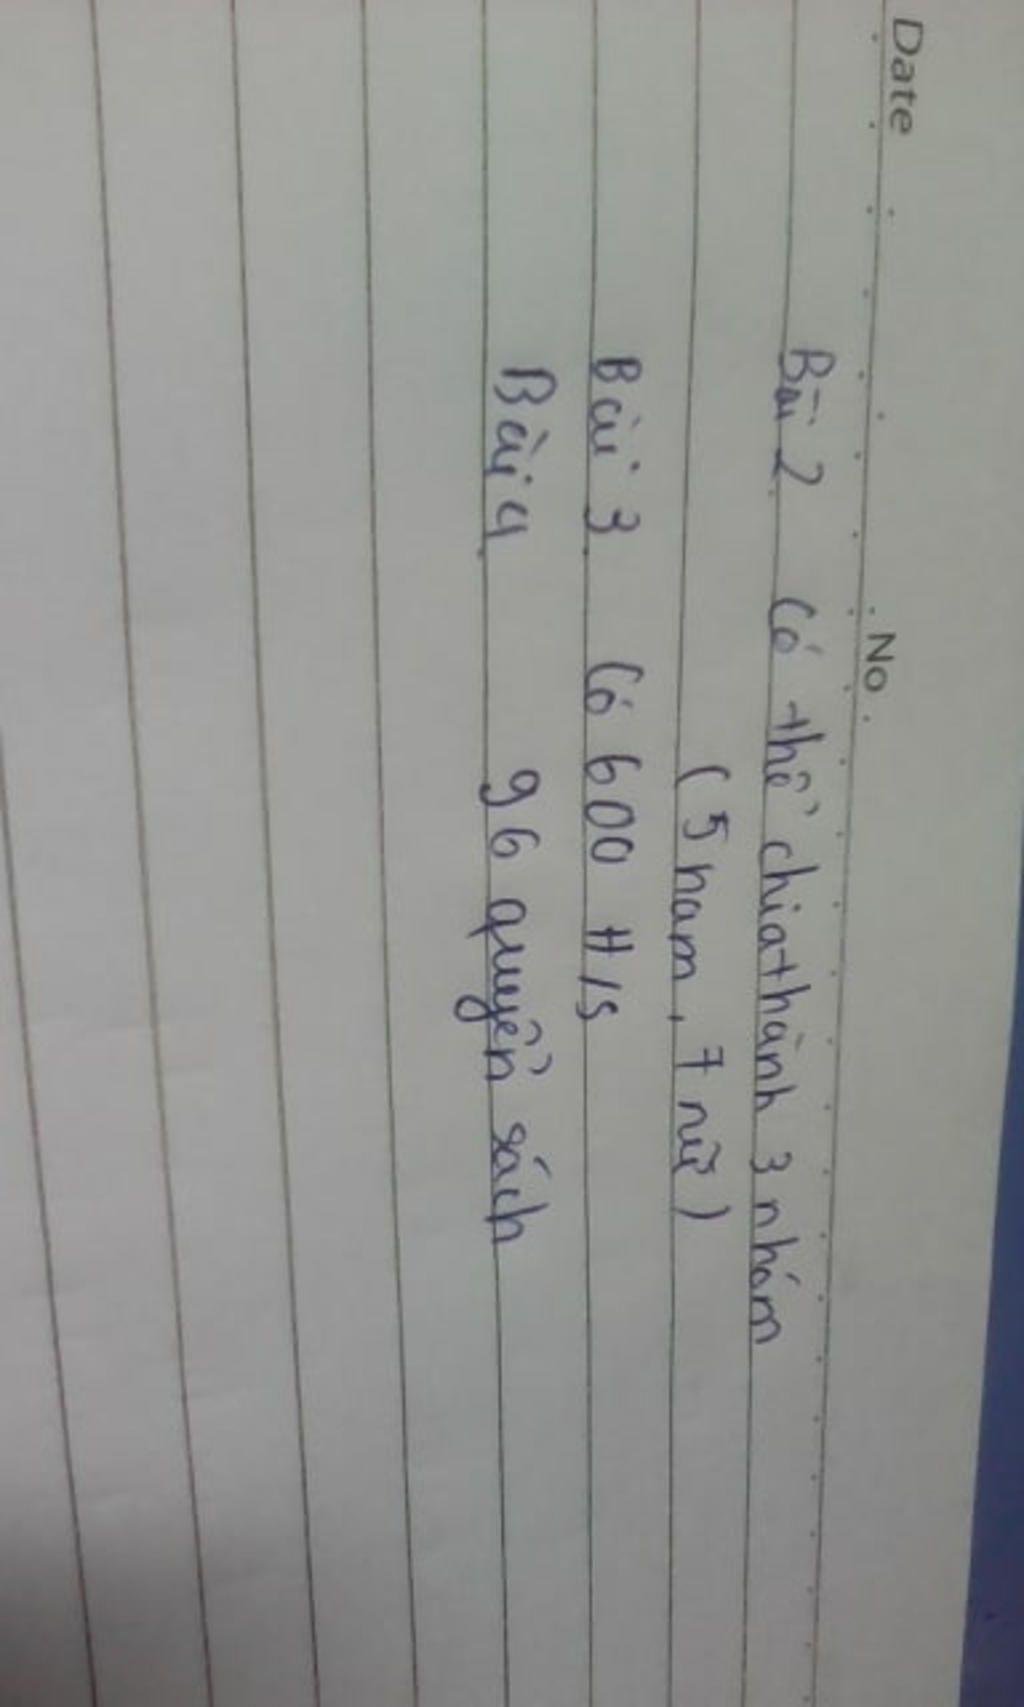 Date No.
Bài 2 Có thể chia thành 3 nhóm
(5 nam, 7 nữ)
Bài 3 Có 600 H/s
Bài 4 96 quyển sách